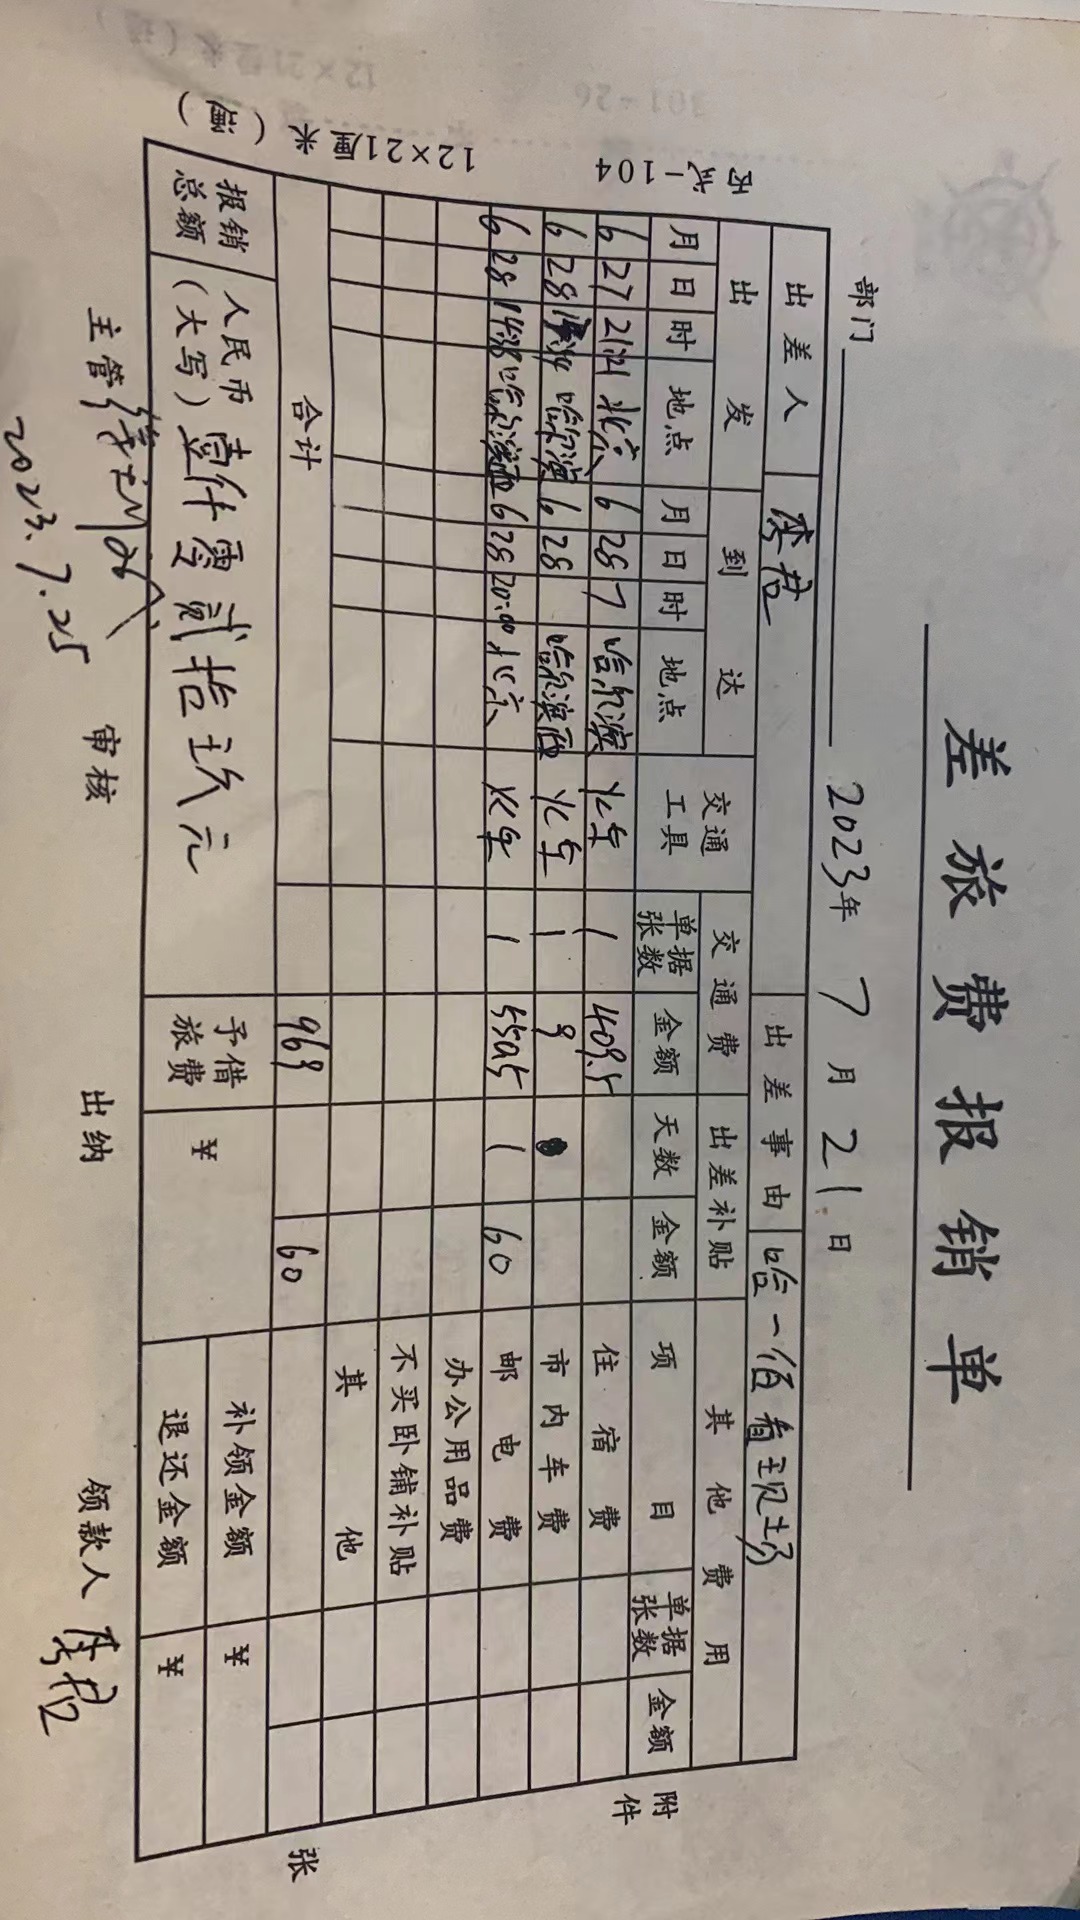 差旅费报销单
部门 2023年 7 月 21 日
出差人 李君 出差事由 哈一佰看现场
出发 到达 交通工具 交通费 出差补贴 其他费用
月 日 时 地点 月 日 时 地点 单据张数 金额 天数 金额 项目 单据张数 金额
6 27 21:21 北京 6 28 7 哈尔滨 火车 1 409.5 住宿费
6 28 哈尔滨 6 28 哈尔滨西 火车 1 9 市内车费
6 28 1438 哈尔滨西 6 28 20:00 北京 火车 1 550.5 1 60 邮电费
办公用品费
不买卧铺补贴
其他
合计 969 60
报销总额 人民币(大写) 壹仟零贰拾玖元 予借旅费 ¥ 补领金额 ¥
退还金额 ¥
主管 审核 出纳 领款人 李君
2023.7.25
附件 张
丙式-104 12×21厘米